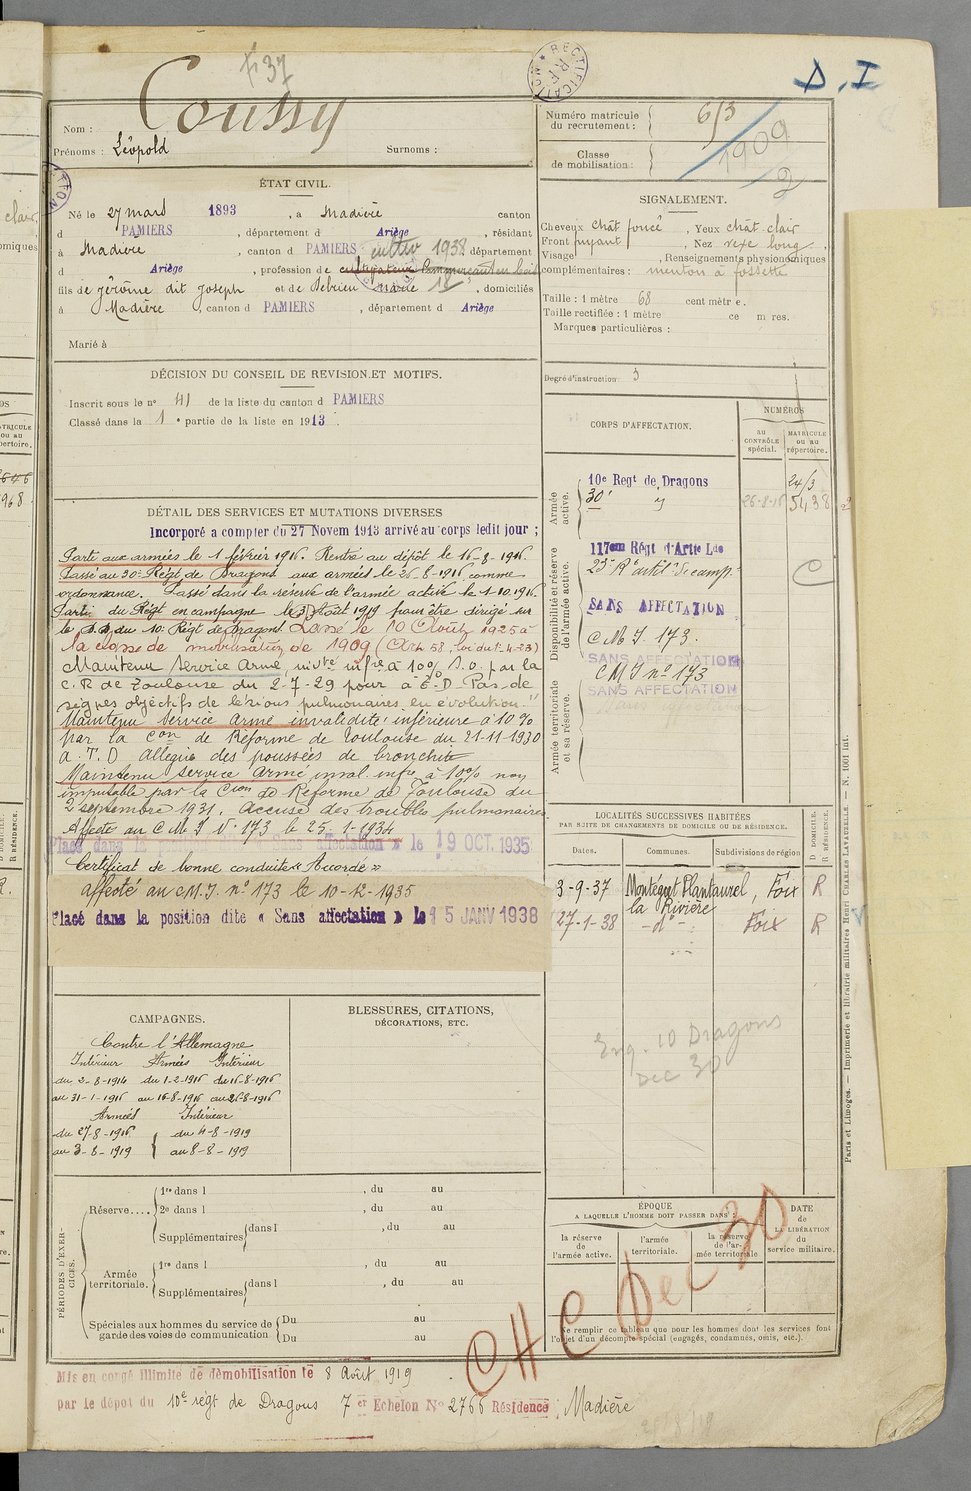 F 37
Coussy
Nom :
Prénoms : Léopold Surnoms :
RECTIFICATION
RF
D.I
Numéro matricule du recrutement : 613
Classe de mobilisation : 1909
2
ÉTAT CIVIL.
Né le 27 mars 1893, à Madière canton
d PAMIERS, département d Ariège, résidant
à Madière, canton d PAMIERS cultiv 1938 département
d Ariège, profession de cultivateur Commerçant en bois
fils de Jérôme dit Joseph et de Debrieu Marie 18, domiciliés
à Madière, canton d PAMIERS, département d Ariège
Marié à
SIGNALEMENT.
Cheveux chât foncé, Yeux chât-clair
Front fuyant, Nez vexe long,
Visage, Renseignements physionomiques
complémentaires : menton à fossette
Taille : 1 mètre 68 centimètre.
Taille rectifiée : 1 mètre ce m res.
Marques particulières :
Degré d'instruction : 3
DÉCISION DU CONSEIL DE REVISION ET MOTIFS.
Inscrit sous le n° 41 de la liste du canton d PAMIERS
Classé dans la 1 e partie de la liste en 1913.
DÉTAIL DES SERVICES ET MUTATIONS DIVERSES
Incorporé a compter du 27 Novem 1913 arrivé au corps ledit jour ;
Parti aux armées le 1 février 1916. Rentré au dépôt le 16-8-1916.
Passé au 30e Régt de Dragons aux armées le 26-8-1916 comme
ordonnance. Passé dans la réserve de l'armée active le 1-10-1916.
Parti du Régt en campagne le 3 août 1919 pour être dirigé sur
le D.D. du 10e Régt de Dragons. Passé le 10 Août 1925 à
la classe de mobilisation de 1909 (Art 58, loi du 1-4-23)
Maintenu Service Armé, invte infre à 10% S.O. par la
C.R de Toulouse du 2-7-29 pour à E.D. Pas de
signes objectifs de lésions pulmonaires en évolution"
Maintenu Service armé invalidité inférieure à 10%
par la Con de Réforme de Toulouse du 21-11-1930
a. T.D allègue des poussées de bronchite
Maintenu service armé inval. infre à 10% non
imputable par la Cion de Réforme de Toulouse du
2 septembre 1931. Accuse des troubles pulmonaires
Affecté au C M I N° 173 le 25-1-1934
Placé dans la position dite « Sans affectation » le 19 OCT. 1935
Certificat de bonne conduite « Accordé »
affecté au C.M.I. n° 173 le 10-12-1935
Placé dans la position dite « Sans affectation » Le 15 JANV 1938
CORPS D'AFFECTATION.
NUMÉROS
au CONTRÔLE spécial.
MATRICULE ou au répertoire.
Armée active.
10e Regt de Dragons 24/3
30e 26-8-16 5438
Disponibilité et réserve de l'armée active.
117em Régt d'Artie Lde
SANS AFFECTATION
C M I 173.
SANS AFFECTATION
C M I n° 173
SANS AFFECTATION
Armée territoriale et sa réserve.
C
LOCALITÉS SUCCESSIVES HABITÉES
PAR SUITE DE CHANGEMENTS DE DOMICILE OU DE RÉSIDENCE.
Dates. Communes. Subdivisions de région
D DOMICILE.
R RÉSIDENCE.
3-9-37 Montégut Plantaurel, Foix R
la Rivière
27-1-38 -d°- Foix R
Eng. 10 Dragons
Dec 30
CAMPAGNES.
Contre l'Allemagne
Intérieur Armées Intérieur
du 2-8-1914 du 1-2-1916 du 16-8-1916
au 31-1-1916 au 16-8-1916 au 26-8-1916
Armées Intérieur
du 27-8-1916 du 4-8-1919
au 3-8-1919 au 8-8-1919
BLESSURES, CITATIONS,
DÉCORATIONS, ETC.
PÉRIODES D'EXERCICES.
Réserve....
1re dans l , du au
2e dans l , du au
Supplémentaires dans l , du au
Armée territoriale.
1re dans l , du au
Supplémentaires dans l , du au
Spéciales aux hommes du service de garde des voies de communication
Du au
Du au
ÉPOQUE
A LAQUELLE L'HOMME DOIT PASSER DANS :
la réserve de l'armée active.
l'armée territoriale.
la réserve de l'armée territoriale
DATE de LA LIBÉRATION du service militaire.
Ne remplir ce tableau que pour les hommes dont les services font
l'objet d'un décompte spécial (engagés, condamnés, omis, etc.).
CHC Dec 30
Mis en congé illimité de démobilisation le 8 Août 1919.
par le dépôt du 10e régt de Dragons 7 er Echelon N° 2766 Résidence : Madière
Paris et Limoges. — Imprimerie et librairie militaires Henri CHARLES-LAVAUZELLE. — N. 1001 int.